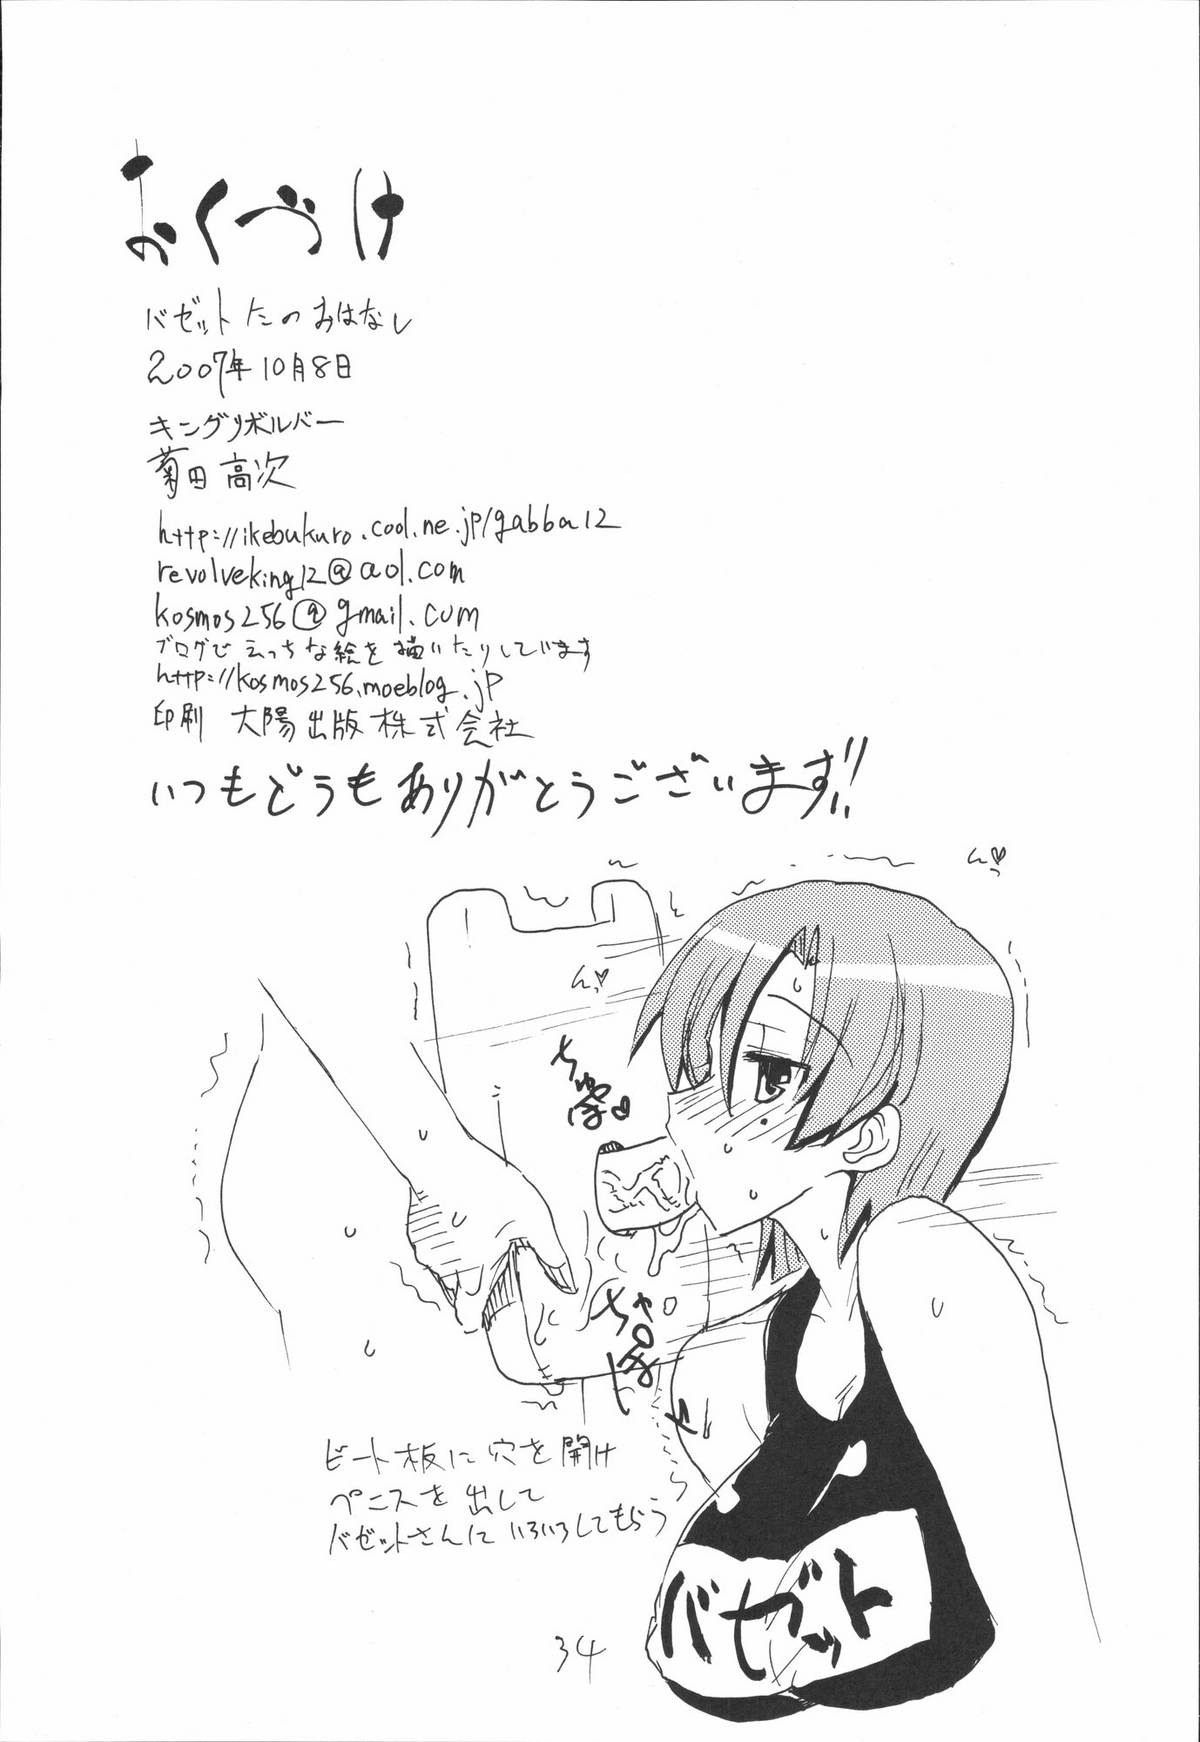 おくづけ
バゼットたのおはなし
2007年10月8日
キングリボルバー
菊田高次
http://ikebukuro.cool.ne.jp/gabba12
revolveking12@aol.com
kosmos256@gmail.com
ブログでえっちな絵を描いたりしています
http://kosmos256.moeblog.jp
印刷 大陽出版株式会社
いつもどうもありがとうございます!!
んっ♥
んっ♥
ちゅぽ♥
ちゃぽ
ビート板に穴を開け
ペニスを出して
バゼットさんにいろいろしてもらう
バゼット
34